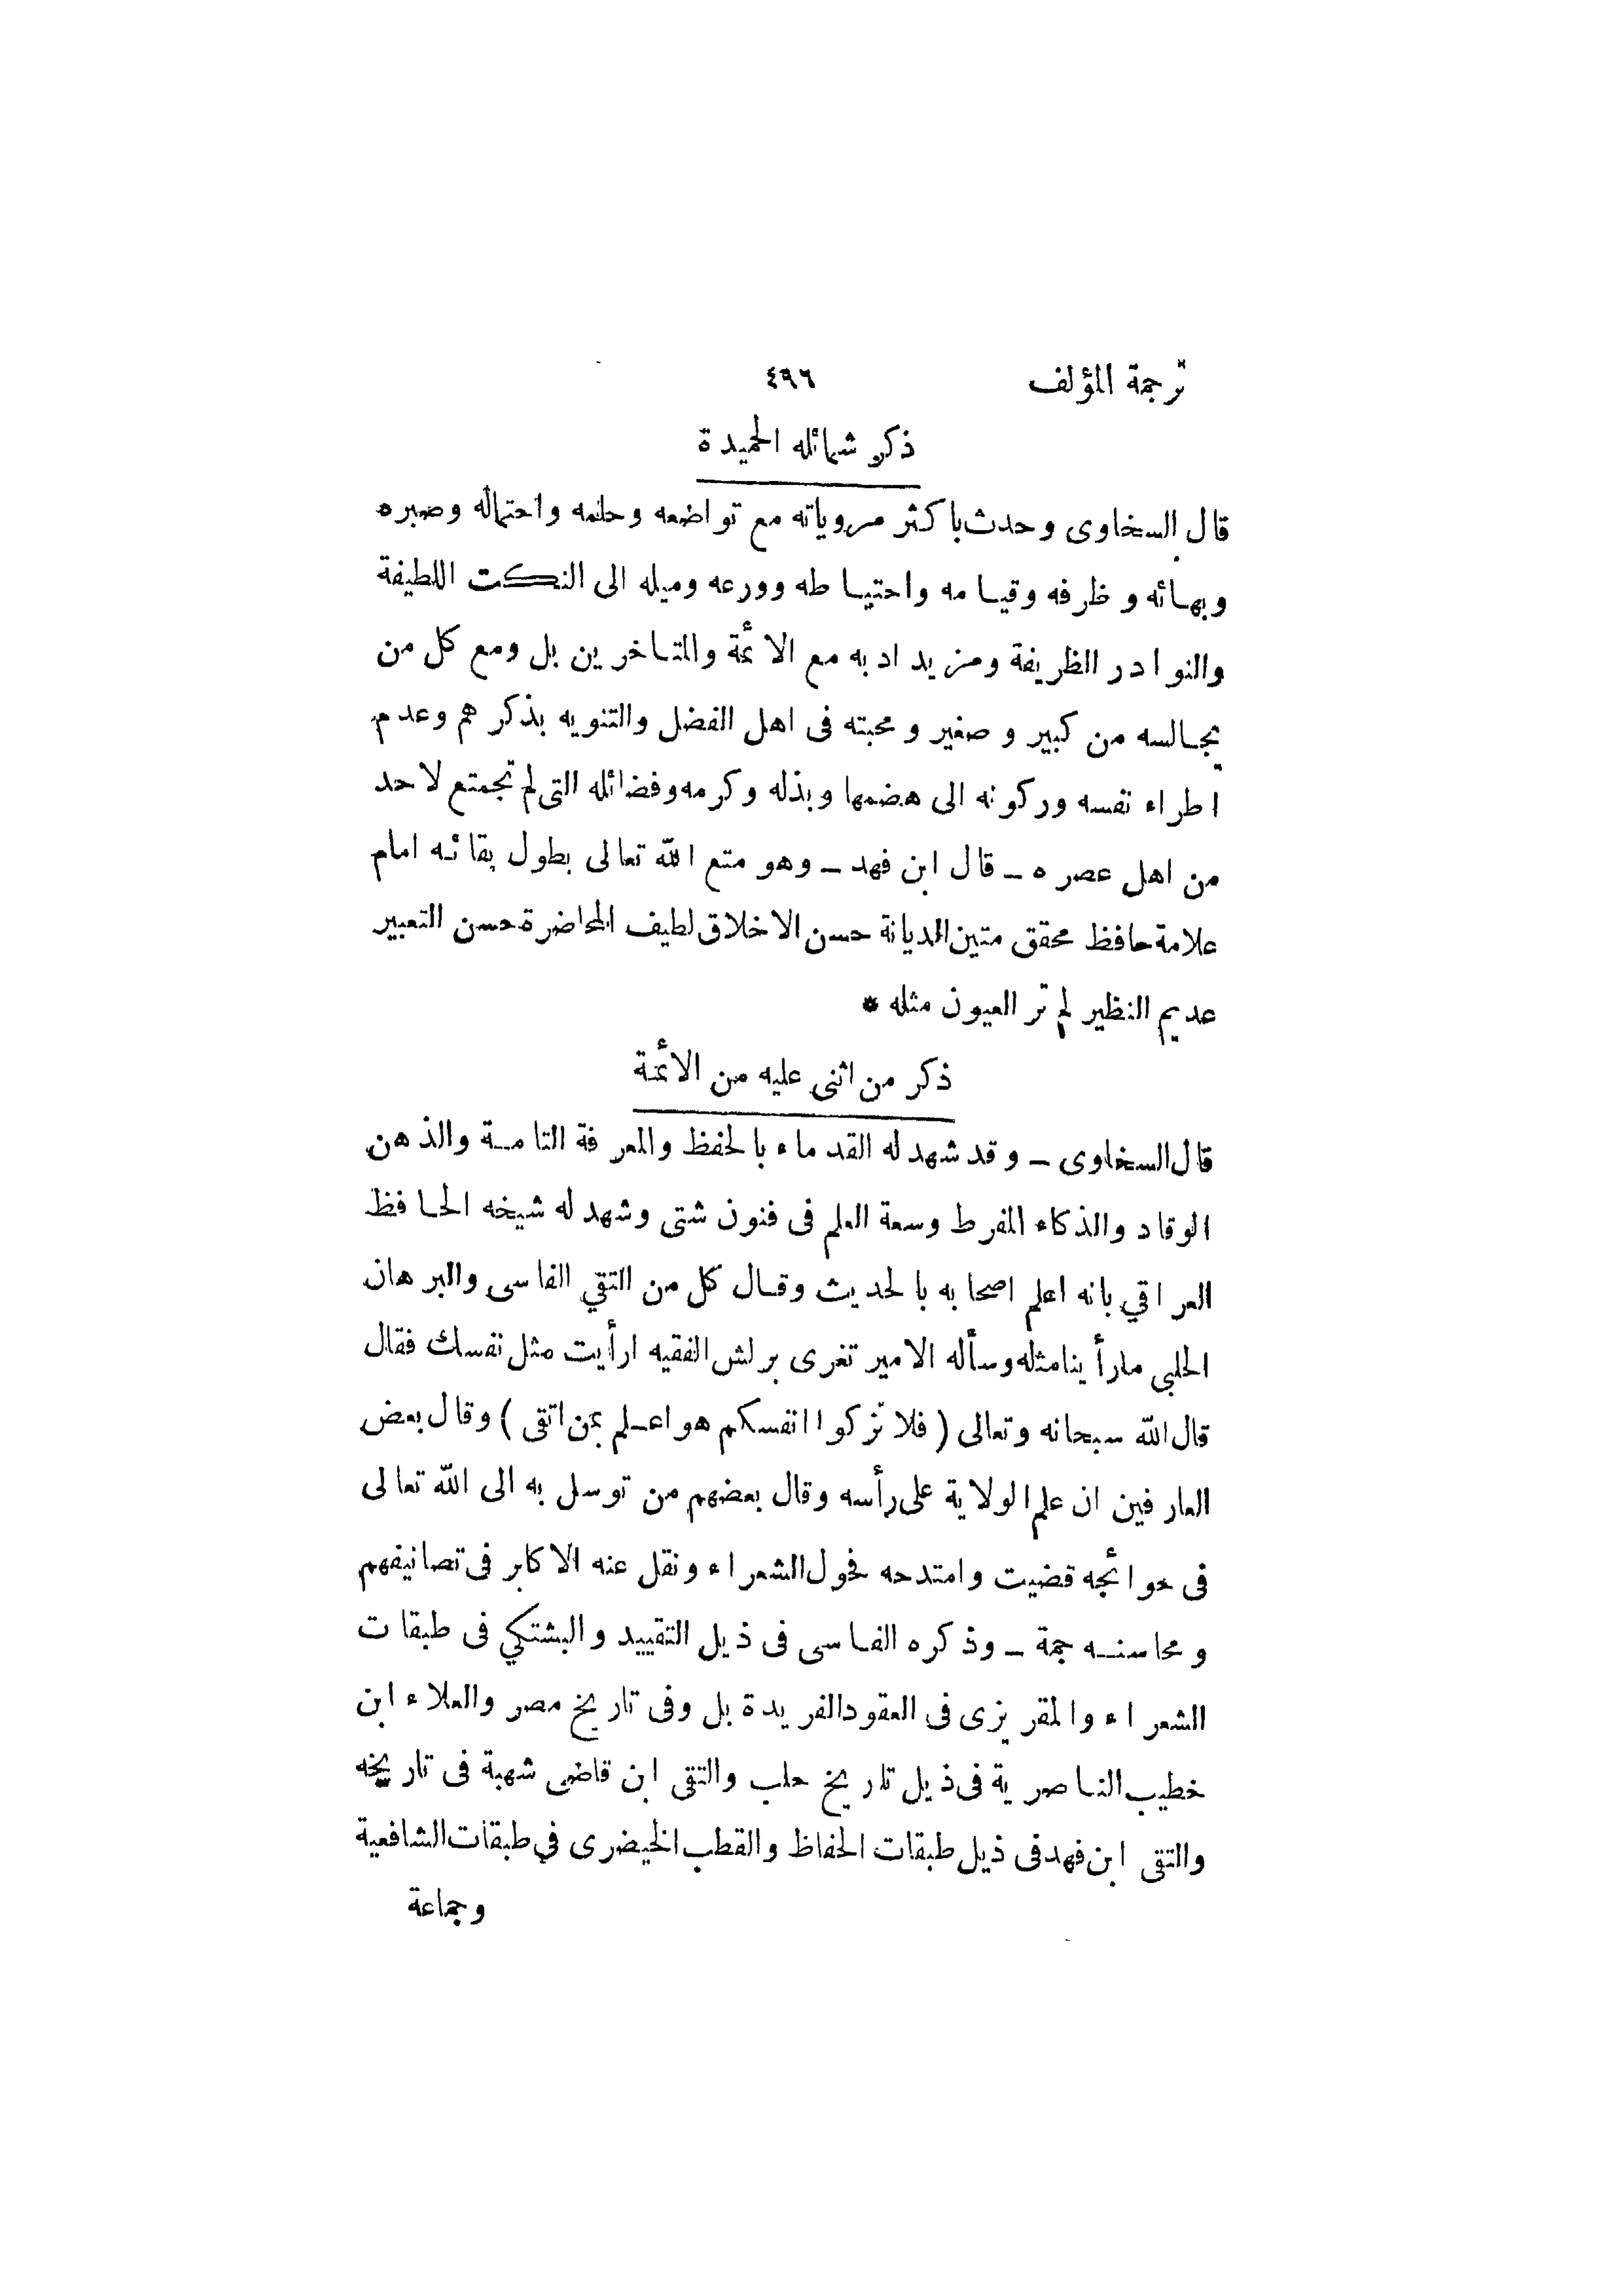 ترجمة المؤلف ٤٩٦
ذكر شمائله الحميدة
قال السخاوى وحدث باكثر مروياته مع تواضعه وحلمه واحتماله وصبره
وبهائه وظرفه وقيامه واحتياطه وورعه وميله الى النكت اللطيفة
والنوادر الظريفة ومزيد ادبه مع الائمة والمتاخرين بل ومع كل من
يجالسه من كبير وصغير ومحبته فى اهل الفضل والتنويه بذكرهم وعدم
اطراء نفسه وركونه الى هضمها وبذله وكرمه وفضائله التى لم تجتمع لاحد
من اهل عصره – قال ابن فهد – وهو متع الله تعالى بطول بقائه امام
علامة حافظ محقق متين الديانة حسن الاخلاق لطيف المحاضرة حسن التعبير
عديم النظير لم تر العيون مثله *
ذكر من اثنى عليه من الائمة
قال السخاوى – وقد شهد له القدماء بالحفظ والمعرفة التامة والذهن
الوقاد والذكاء المفرط وسعة العلم فى فنون شتى وشهد له شيخه الحافظ
العراقي بانه اعلم اصحابه بالحديث وقال كل من التقي الفاسى والبرهان
الحلبي مارأينا مثله وسأله الامير تغرى برلش الفقيه ارأيت مثل نفسك فقال
قال الله سبحانه وتعالى ( فلا تزكوا انفسكم هو اعلم بمن اتقى ) وقال بعض
العارفين ان علم الولاية على رأسه وقال بعضهم من توسل به الى الله تعالى
فى حوائجه قضيت وامتدحه فحول الشعراء ونقل عنه الاكابر فى تصانيفهم
ومحاسنه جمة – وذكره الفاسى فى ذيل التقييد والبشتكي فى طبقات
الشعراء والمقريزى فى العقود الفريدة بل وفى تاريخ مصر والعلاء ابن
خطيب الناصرية فى ذيل تاريخ حلب والتقى ابن قاضى شهبة فى تاريخه
والتقى ابن فهد فى ذيل طبقات الحفاظ والقطب الخيضرى في طبقات الشافعية
وجماعة